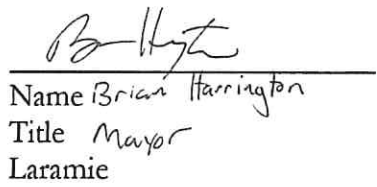 Name Brian Harrington
Title Mayor
Laramie